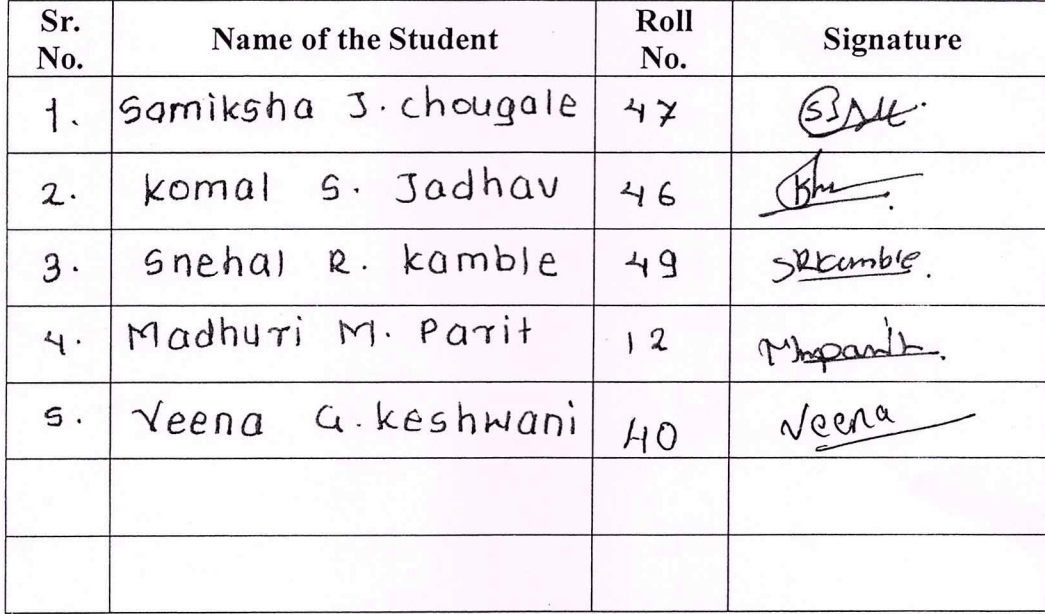 Sr. No. Name of the Student Roll No. Signature
1. Samiksha J. chougale 47
2. komal S. Jadhav 46
3. Snehal R. kamble 49 SRKamble.
4. Madhuri M. Parit 12 MMparit.
5. Veena G. keshwani 40 Veena